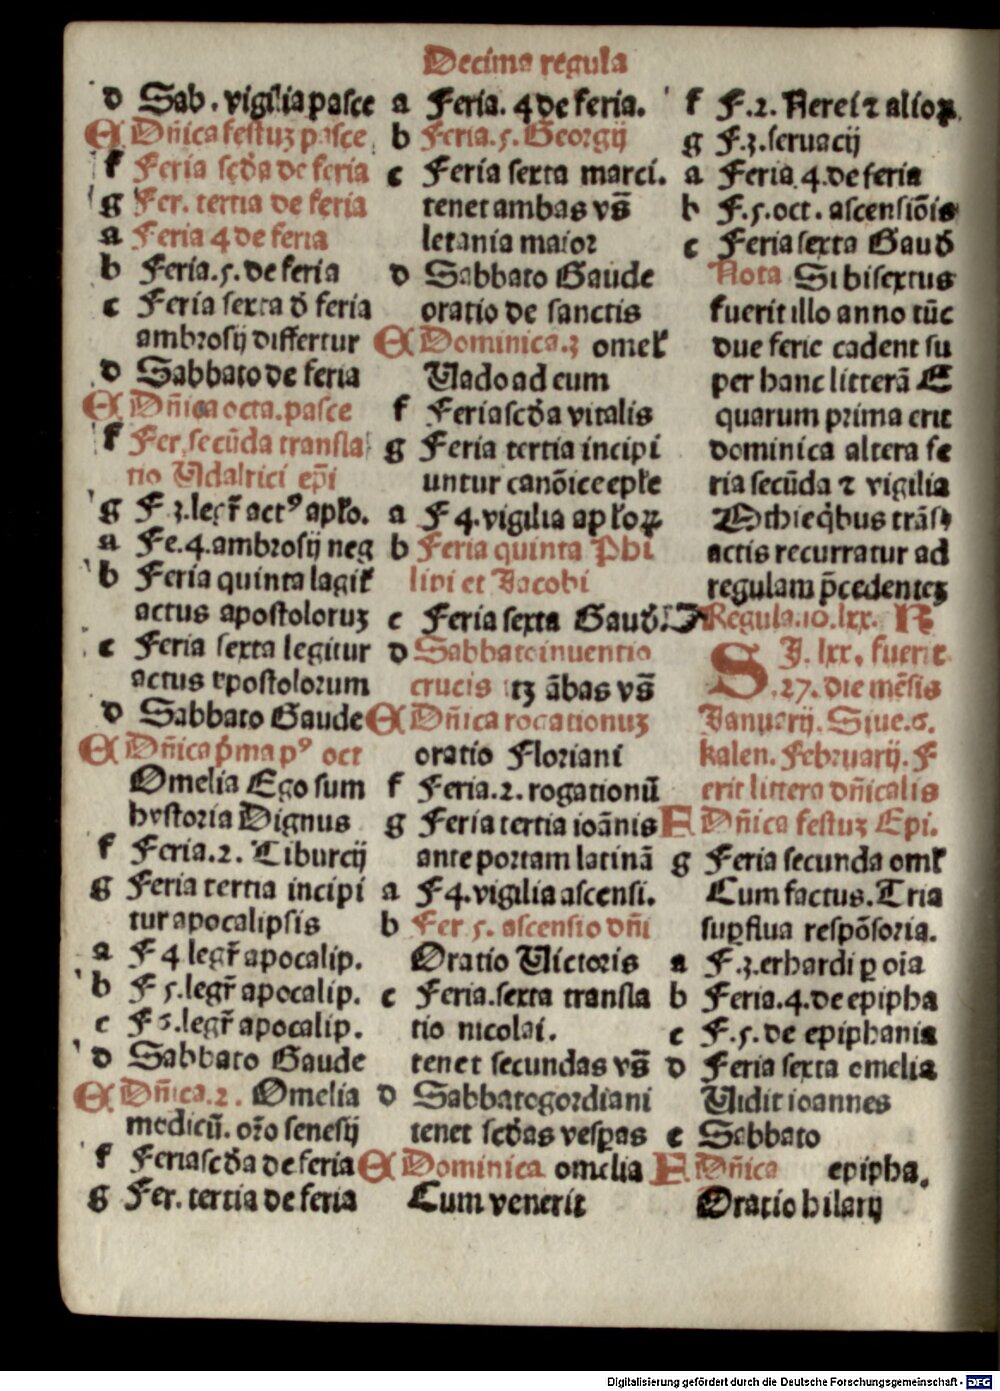 Decima regula
d Sab. vigilia pasce
E Dñica festuȝ pasce
f Feria sc̃da de feria
g Fer. tertia de feria
a Feria 4 de feria
b Feria.5. de feria
c Feria sexta ð feria
ambrosij differtur
d Sabbato de feria
E Dñica octa.pasce
f Fer.secũda transla
tio Udalrici ep̃i
g F 3.legr̃ actꝰ apło.
a Fe.4.ambrosij neg
b Feria quinta lagiƚ
actus apostoloruȝ
c Feria sexta legitur
actus apostolorum
d Sabbato Gaude
E Dñica p̃ma pꝰ oct
Omelia Ego sum
hystoria Dignus
f Feria.2. Tiburcij
g Feria tertia incipi
tur apocalipsis
a F 4 legr̃ apocalip.
b F 5.legr̃ apocalip.
c F 6.legr̃ apocalip.
d Sabbato Gaude
E Dñica.2. Omelia
medicũ. oĩo senesij
f Feria sc̃da de feria
g Fer. tertia de feria
a Feria. 4 de feria.
b Feria.5. Georgij
c Feria sexta marci.
tenet ambas vs̃
letania maior
d Sabbato Gaude
oratio de sanctis
E Dominica.3 omeƚ
Uado ad eum
f Feria sc̃da vitalis
g Feria tertia incipi
untur canõice epƚe
a F 4.vigilia apƚoꝝ
b Feria quinta Phi
lipi et Jacobi
c Feria sexta Gauð.
d Sabbato inuentio
crucis tȝ ãbas vs̃
E Dñica rogationuȝ
oratio Floriani
f Feria.2. rogationũ
g Feria tertia ioãnis
ante portam latinã
a F 4.vigilia ascensi.
b Fer 5. ascensio dñi
Oratio Uictoris
c Feria.sexta transla
tio nicolai.
tenet secundas vs̃
d Sabbato gordiani
tenet sc̃das vesꝑas
E Dominica omelia
Cum venerit
f F.2. Nerei ⁊ alioꝝ
g F.3.seruacij
a Feria 4.de feria
b F.5.oct. ascensiõis
c Feria sexta Gauð
Nota Si bisextus
fuerit illo anno tũc
due ferie cadent su
per hanc litterã E
quarum prima erit
dominica altera fe
ria secũda ⁊ vigilia
Mathie q̃bus trãs
actis recurratur ad
regulam p̃cedenteȝ
Regula.10.lxx. R
SJ. lxx. fuerit
.27. die mẽsis
Januarij. Siue.6.
kalen. Februarij. F
erit littera dñicalis
F Dñica festuȝ Epi.
g Feria secunda omƚ
Cum factus. Tria
suꝑflua respõsoria.
a F.3.erhardi ꝑ oĩa
b Feria.4.de epipha
c F.5. de epiphania
d Feria sexta omelia
Uidit ioannes
e Sabbato
F Dñica epipha.
Oratio hilarij
Digitalisierung gefördert durch die Deutsche Forschungsgemeinschaft - DFG